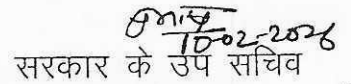 10-02-2026
सरकार के उप सचिव